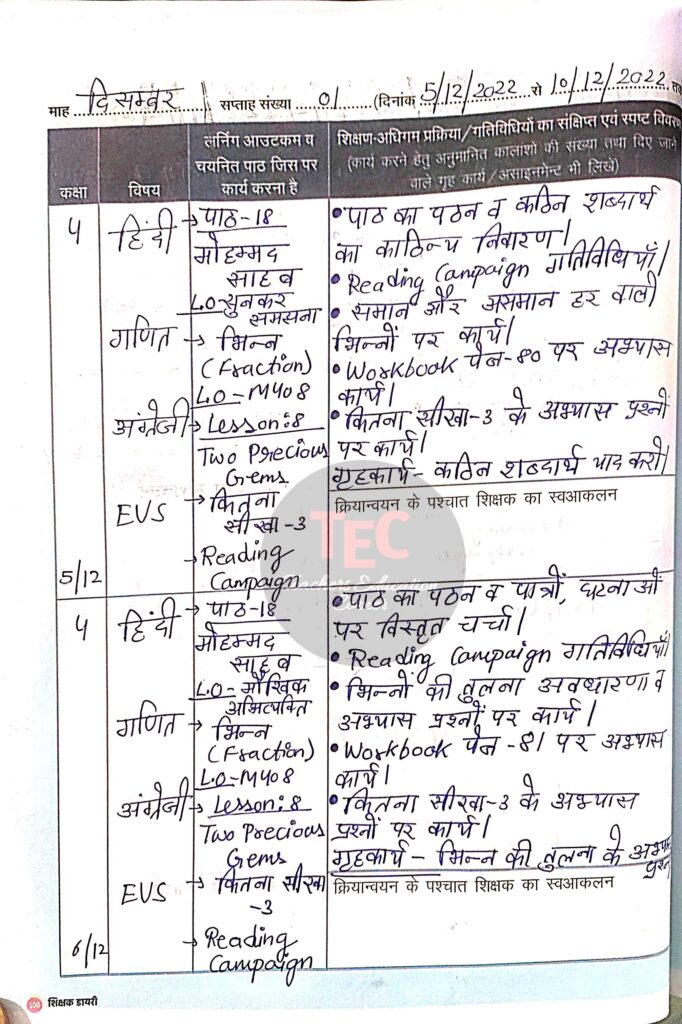 माह दिसम्बर सप्ताह संख्या 01 (दिनांक 5/12/2022 से 10/12/2022 तक
कक्षा
विषय
लर्निंग आउटकम व
चयनित पाठ जिस पर
कार्य करना है
शिक्षण-अधिगम प्रक्रिया/गतिविधियों का संक्षिप्त एवं स्पष्ट विवरण
(कार्य करने हेतु अनुमानित कालांशो की संख्या तथा दिए जाने
वाले गृह कार्य/असाइनमेन्ट भी लिखें)
5/12
4
हिंदी
गणित
अंग्रेजी
EVS
→ पाठ-18
मोहम्मद
साहब
L.O-सुनकर
समझना
→ भिन्न
(Fraction)
L.O-M408
→ Lesson:8
Two Precious
Gems
→ कितना
सीखा-3
→ Reading
Campaign
• पाठ का पठन व कठिन शब्दार्थ
का काठिन्य निवारण।
• Reading Campaign गतिविधियाँ।
• समान और असमान हर वाली
भिन्नों पर कार्य।
• Workbook पेज-80 पर अभ्यास
कार्य।
• कितना सीखा-3 के अभ्यास प्रश्नों
पर कार्य।
गृहकार्य- कठिन शब्दार्थ याद करो।
क्रियान्वयन के पश्चात शिक्षक का स्वआकलन
TEC
Teachers Education
6/12
4
हिंदी
गणित
अंग्रेजी
EVS
→ पाठ-18
मोहम्मद
साहब
L.O- मौखिक
अभिव्यक्ति
→ भिन्न
(Fraction)
L.O-M408
→ Lesson:8
Two Precious
Gems
→ कितना सीखा
-3
→ Reading
Campaign
• पाठ का पठन व पात्रों, घटनाओं
पर विस्तृत चर्चा।
• Reading Campaign गतिविधियाँ।
• भिन्नों की तुलना अवधारणा व
अभ्यास प्रश्नों पर कार्य।
• Workbook पेज-81 पर अभ्यास
कार्य।
• कितना सीखा-3 के अभ्यास
प्रश्नों पर कार्य।
गृहकार्य- भिन्न की तुलना के अभ्यास
प्रश्न
क्रियान्वयन के पश्चात शिक्षक का स्वआकलन
100 शिक्षक डायरी